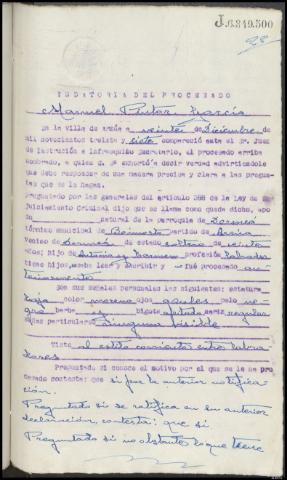 J.6.349.500
28
INDATORIA DEL PROCESADO
Manuel Pintor García
En la villa de Arzúa a veinte de Diciembre de
mil novecientos treinta y siete compareció ante el sr. Juez
de Instrucción e infrascrito Secretario, el procesado arriba
nombrado, a quien S. Sª exhortó a decir verdad advirtiéndole
que debe responder de una manera precisa y clara a las pregun-
tas que se le hagan.
Preguntado por las generales del artículo 388 de la Ley de En-
juiciamiento Criminal dijo que se llama como queda dicho, apo-
do natural de la parroquia de
término municipal de Boimorto partido de Arzúa
vecino de de estado soltero de veinte
años; hijo de Antonio y Carmen profesión labrador
tiene hijos, sabe leer y escribir y no fué procesado an-
teriormente.
Que sus señales personales las siguientes: estatura
baja color moreno ojos azules pelo ne-
gro barba bigote afeitado nariz regular
señas particulares ninguna visible
Viste al estilo corriente entre labra-
dores
Preguntado si conoce el motivo por el que se le ha pro-
cesado contesta: que si por la anterior notifica-
ción.
Preguntado si se ratifica en su anterior
declaración, contesta: que si
Preguntado si no obstante lo que tiene